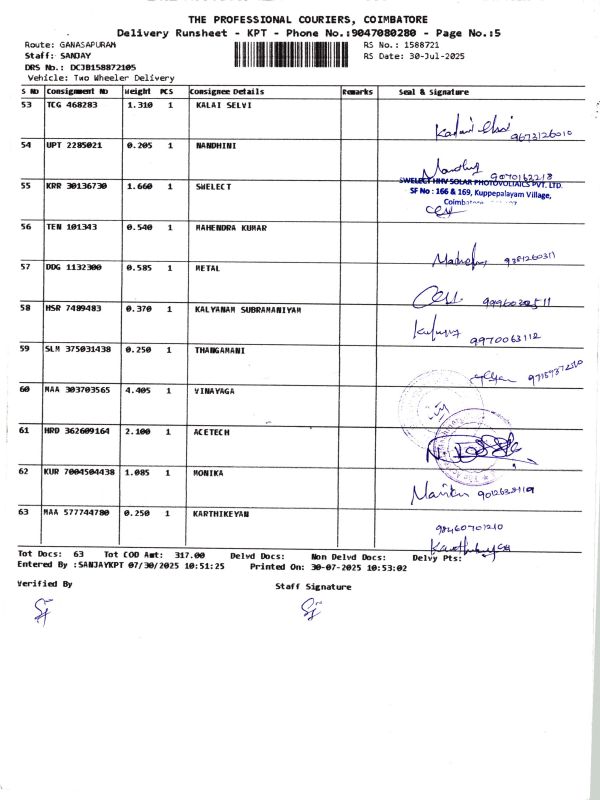 THE PROFESSIONAL COURIERS, COIMBATORE
Delivery Runsheet - KPT - Phone No.:9047080280 - Page No.:5
Route: GANASAPURAM
RS No.: 1588721
Staff: SANJAY
RS Date: 30-Jul-2025
DRS No.: DCJB158872105
Vehicle: Two Wheeler Delivery
S No Consignment No Weight PCS Consignee Details Remarks Seal & Signature
53 TCG 468283 1.310 1 KALAI SELVI
9673126010
54 UPT 2285021 0.205 1 NANDHINI
9070163218
55 KRR 30136730 1.660 1 SWELECT
SWELECT HHV SOLAR PHOTOVOLTAICS PVT. LTD.
SF No : 166 & 169, Kuppepalayam Village,
56 TEN 101343 0.540 1 MAHENDRA KUMAR
57 DDG 1132300 0.585 1 METAL
58 HSR 7489483 0.370 1 KALYANAM SUBRAMANIYAM
9970063112
59 SLM 375031438 0.250 1 THANGAMANI
60 MAA 303703565 4.405 1 VINAYAGA
61 HRD 362609164 2.100 1 ACETECH
62 KUR 7004504438 1.085 1 MONIKA
63 MAA 577744780 0.250 1 KARTHIKEYAN
98460701210
Tot Docs: 63 Tot COD Amt: 317.00 Delvd Docs: Non Delvd Docs: Delvy Pts:
Entered By :SANJAYKPT 07/30/2025 10:51:25 Printed On: 30-07-2025 10:53:02
Verified By
Staff Signature